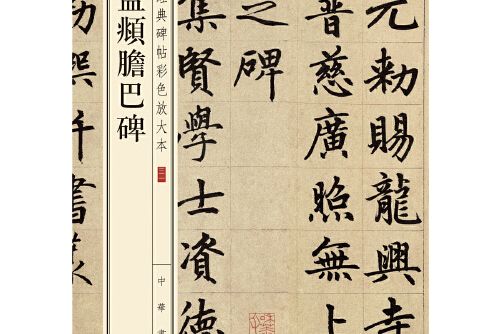 元敕賜龍興寺
普慈廣照無上
之碑
集賢學士資德
典碑帖彩色放大本
中華
孟頫膽巴碑